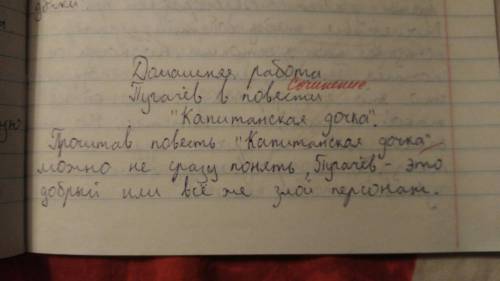 Домашняя работа
сочинение
Пугачёв в повести
"Капитанская дочка".
Прочитав повесть "Капитанская дочка"
можно не сразу понять, Пугачёв - это
добрый или всё же злой персонаж.